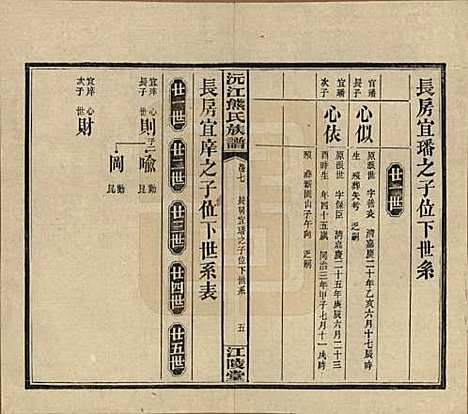 長房宜璠之子位下世系
廿二世
宜璠
長子
心似
原派世 字善亥 清嘉慶二十年乙亥六月十七辰時
生 歿葬失考 乏嗣
宜璠
次子
心依
原派世 字保臣 清嘉慶二十五年庚辰六月二十三
酉時生 年四十五歲 同治三年甲子七月十一戌時
歿 葬新園山子午向 乏嗣
沅江熊氏族譜
卷七 長房宜璠之子位下世系 五
江陵堂
長房宜庠之子位下世系表
廿一世
廿二世
廿三世
廿四世
廿五世
宜庠 心
長子 世
則
子二
喩
勤
崑
岡
勤
崑
宜庠 心
次子 世
財